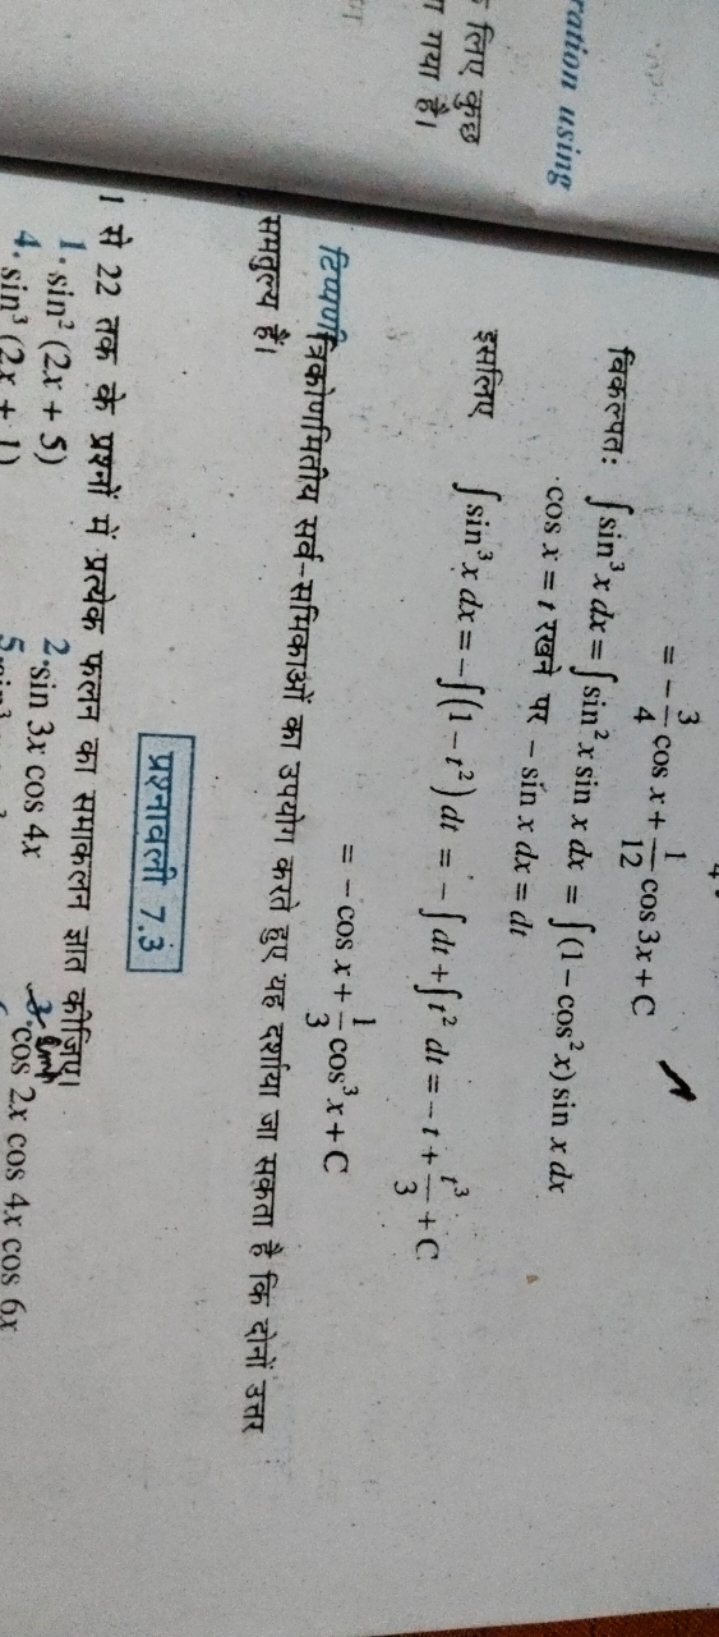 ration using
लिए कुछ
गया है।
= -3/4 cos x + 1/12 cos 3x + C
विकल्पतः ∫sin³ x dx = ∫sin² x sin x dx = ∫(1 – cos² x) sin x dx
cos x = t रखने पर – sin x dx = dt
इसलिए ∫sin³ x dx = –∫(1 – t²) dt = –∫dt + ∫t² dt = – t + t³/3 + C
= – cos x + 1/3 cos³ x + C
टिप्पणी त्रिकोणमितीय सर्व-समिकाओं का उपयोग करते हुए यह दर्शाया जा सकता है कि दोनों उत्तर
समतुल्य हैं।
प्रश्नावली 7.3
1 से 22 तक के प्रश्नों में प्रत्येक फलन का समाकलन ज्ञात कीजिए।
1. sin² (2x + 5) 2. sin 3x cos 4x 3. cos 2x cos 4x cos 6x
4. sin³ (2x + 1) 5.